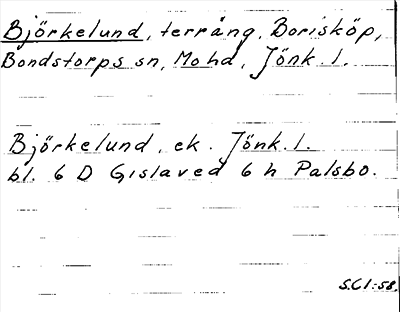 Björkelund, terräng, Borisköp,
Bondstorps sn, Mo hd, Jönk. l.
Björkelund, ek. Jönk. l.
bl. 6 D Gislaved 6 h Palsbo.
S.C 1:58.